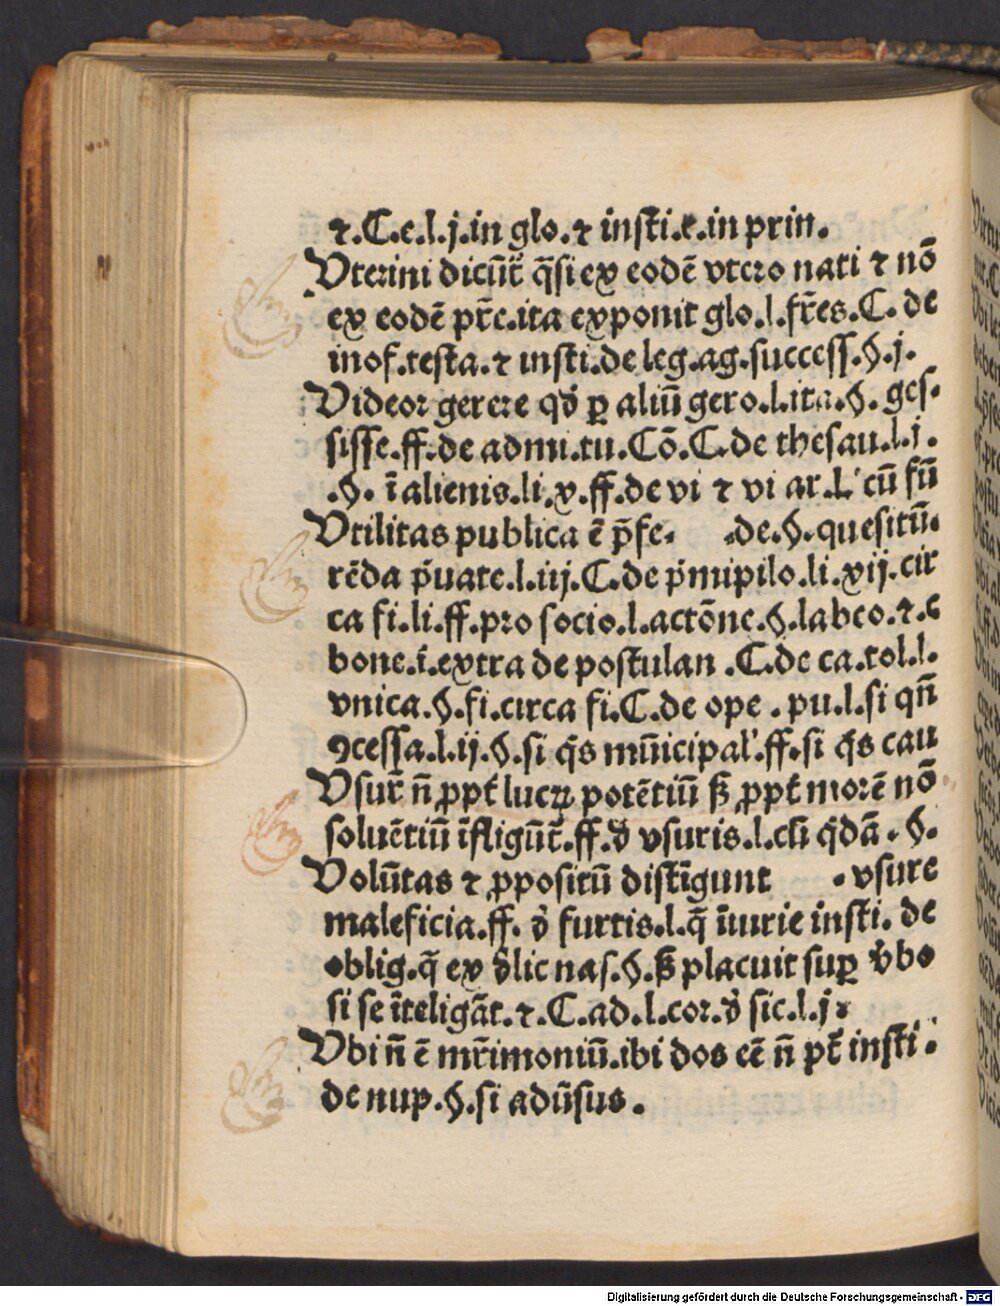 ⁊.C.e.l.j.in glo.⁊ insti.e.in prin.
Uterini dicūt̃ q̄si ex eodē vtero nati ⁊ nō
ex eodē pr̃e.ita exponit glo.l.fr̃es.C. de
inof.testa.⁊ insti.de leg.ag.success.§.j.
Uideor gerere qď ꝑ aliū gero.l.ita.§. ges⸗
sisse.ff.de admi.tu.Cō.C.de thesau.l.j.
.§. ī alienis.li.x.ff.de vi ⁊ vi ar.L' cū fū
Utilitas publica ē p̄fe⸗ .de.§.quesitū.
rēda p̄uate.l.iij.C.de p̄mipilo.li.xij.cir
ca fi.li.ff.pro socio.l.actōne.§.labeo.⁊.c
bone.i.extra de postulan .C.de ca.tol.l.
vnica.§.fi.circa fi.C.de ope . pu.l.si qn̄
ꝯcessa.l.ij.§.si q̄s mūicipal'.ff.si q̄s cau
Usur̃ n̄ ꝓpt̃ lucꝝ potētiū ꝭ ꝓpt̃ morē nō
soluētiū īfligūt̃.ff.ď vsuris.l.cū q̄dā . §.
Uolūtas ⁊ ꝓpositū distīgunt .vsure
maleficia.ff. ď furtis.l.q̄ īiurie insti. de
oblig.q̄ ex ďlic nas.§.ꝭ placuit suꝑ v̄bo
si se īteligāt.⁊.C.ad.l.cor.ď sic.l.j.
Ubi n̄ ē mr̃imoniū.ibi dos eē n̄ pt̃ insti.
de nup.§.si adūsus.
Digitalisierung gefördert durch die Deutsche Forschungsgemeinschaft - DFG